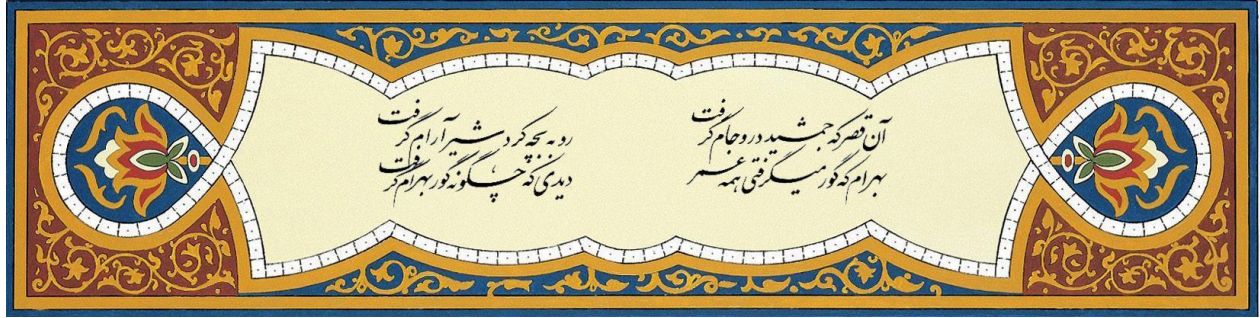 آن قصر که جمشید درو جام گرفت
روبه بچه کرد شیر آرام گرفت
بهرام که گور میگرفتی همه عمر
دیدی که چگونه گور بهرام گرفت